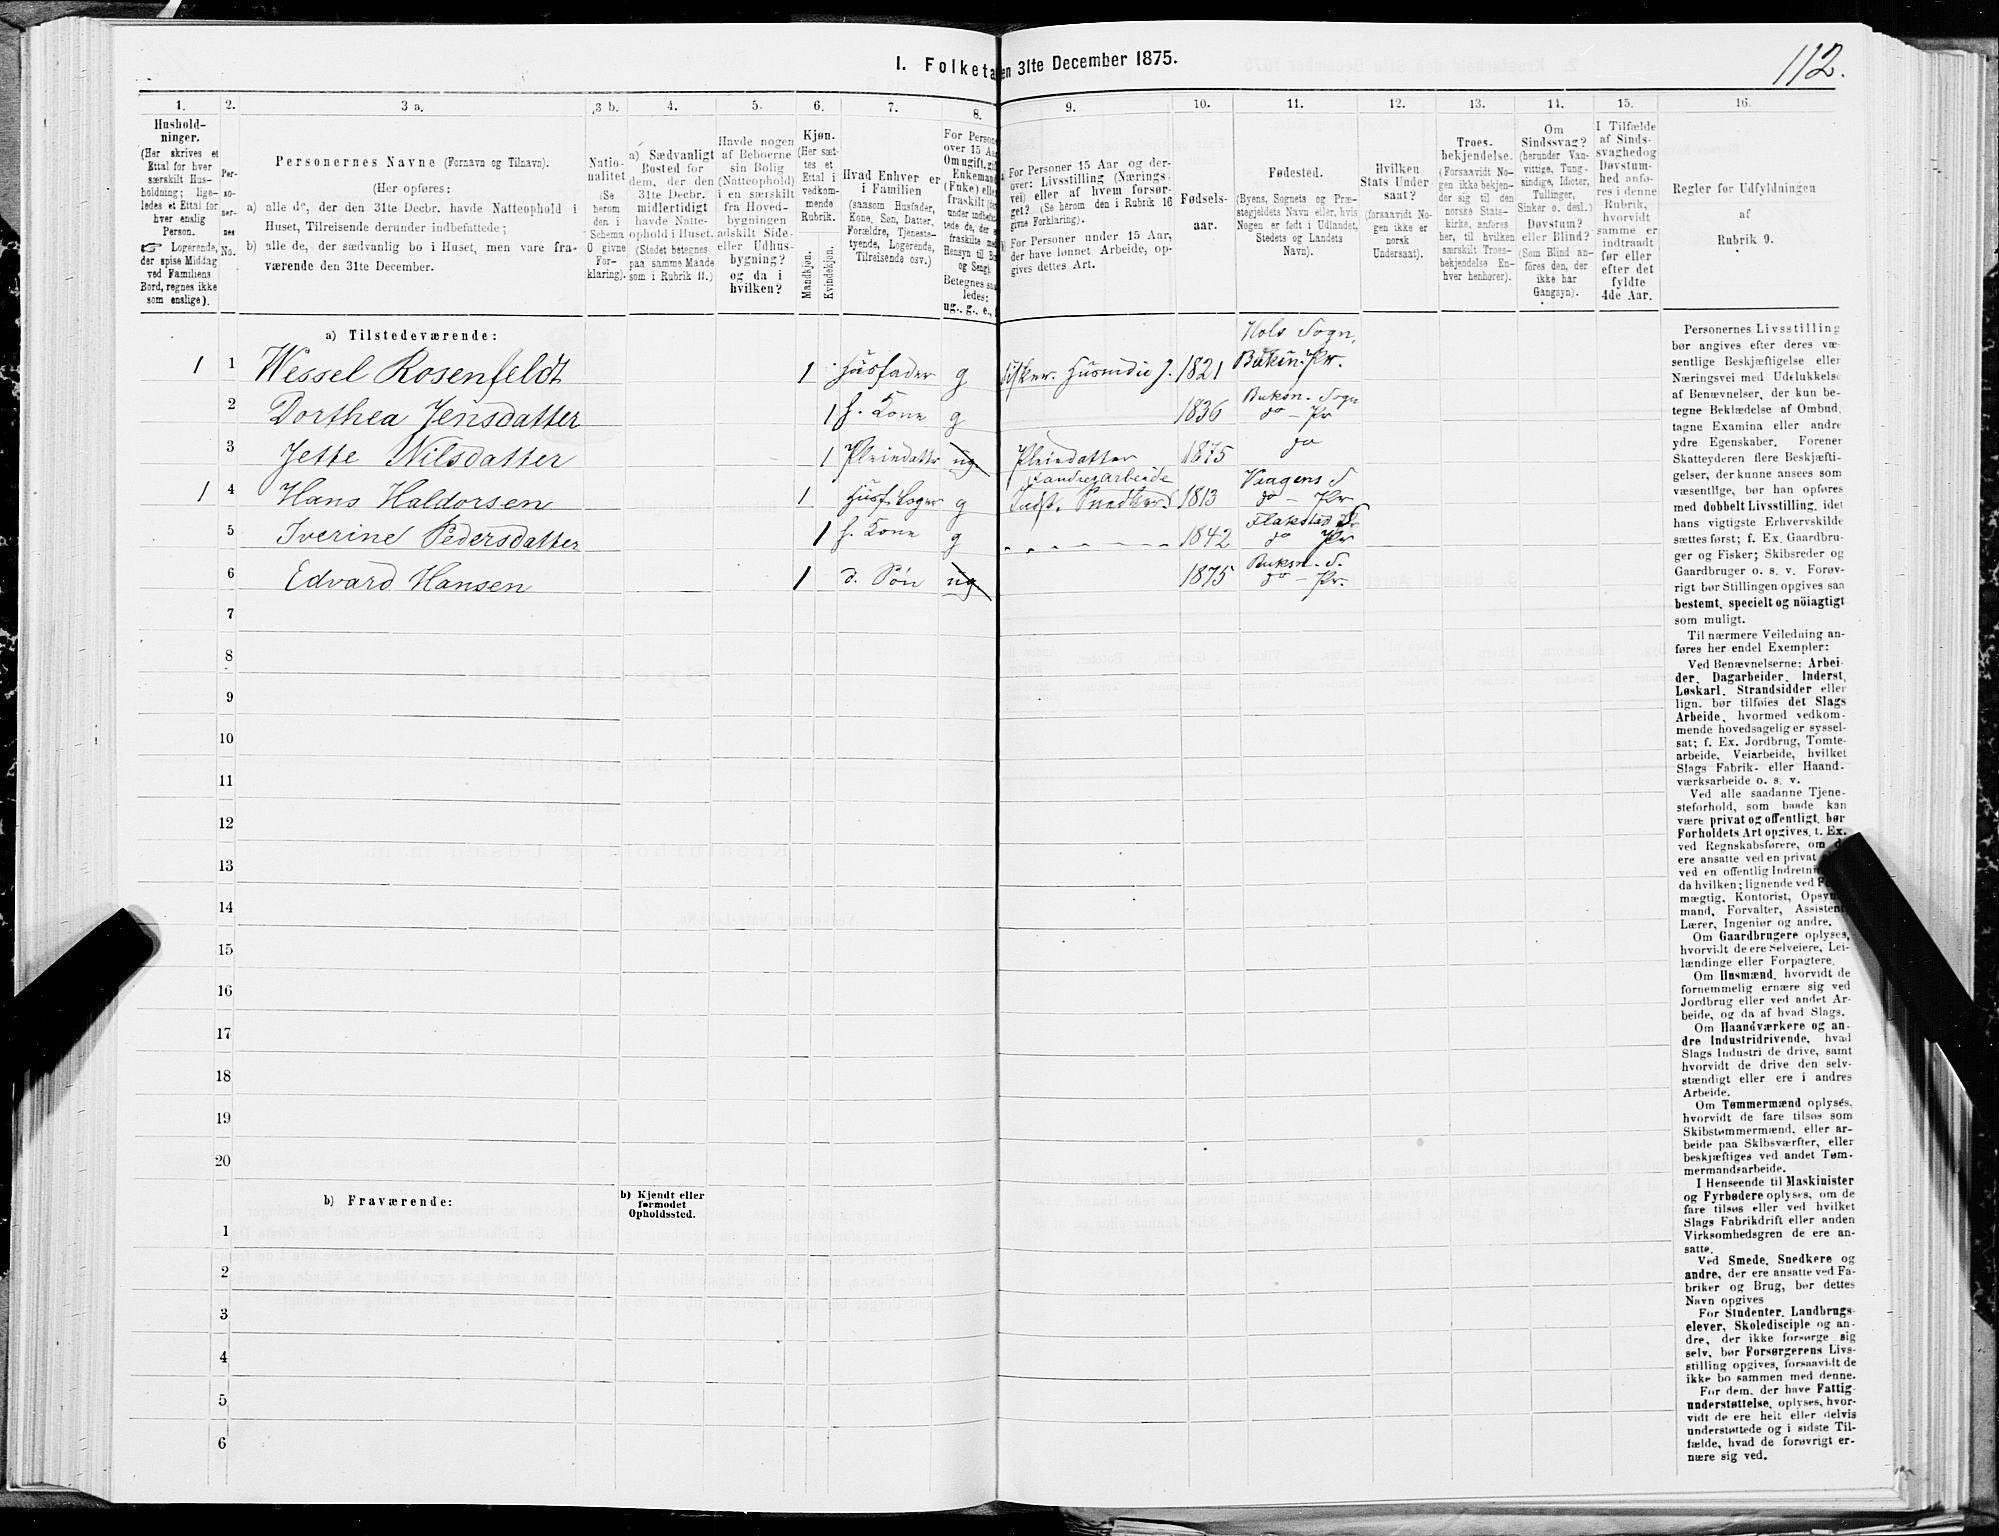 112.
I. Folketa en 31te December 1875.
1. 2. 3 a. 3 b. 4. 5. 6. 7. 8. 9. 10. 11. 12. 13. 14. 15. 16.
Hushold-
ninger.
(Her skrives et
Ettal for hver
særskilt Hus-
holdning; lige-
ledes et Ettal for
hver enslig
Person.
☞ Logerende,
der spise Middag
ved Familiens
Bord, regnes ikke
som enslige).
Per-
so-
ner-
nes
No.
Personernes Navne (Fornavn og Tilnavn).
(Her opføres:
a) alle de, der den 31te Decbr. havde Natteophold i
Huset, Tilreisende derunder indbefattede;
b) alle de, der sædvanlig bo i Huset, men vare fra-
værende den 31te December.
Natio-
nalitet
(Se
herom
den i
Schema
O givne
For-
klaring).
a) Sædvanligt
Bosted for
dem, der den
31te Decbr.
midlertidigt
havde Natte-
ophold i Huset.
(Stedet betegnes
paa samme Maade
som i Rubrik 11.)
Havde nogen
af Beboerne
sin Bolig
(Natteophold)
i en særskilt
fra Hoved-
bygningen
adskilt Side-
eller Udhus-
bygning?
og da i
hvilken?
Kjøn.
(Her sæt-
tes et
Ettal i
vedkom-
mende
Rubrik.
Mandkjøn.
Kvindekjøn.
Hvad Enhver er
i Familien
(saasom Husfader,
Kone, Søn, Datter,
Forældre, Tjeneste-
tyende, Logerende,
Tilreisende osv.)
For Person
over 15 Aa
Om ugift, gif
Enkemand
(Fnke) elle
fraskilt (de
under indbefa
de, der e
fraskilte me
Hensyn til Bo
og Seng).
Betegnes saa
ledes:
ug., g., e., f
a) For Personer 15 Aar og der-
over: Livsstilling (Nærings-
vei) eller af hvem forsør-
get? (Se herom den i Rubrik 16
givne Forklaring).
b) For Personer under 15 Aar,
der have lønnet Arbeide, op-
gives dettes Art.
Fødsels-
aar.
Fødested.
(Byens, Sognets og Præ-
stegjeldets Navn eller, hvis
Nogen er født i Udlandet,
Stedets og Landets
Navn).
Hvilken
Stats Under
saat?
(forsaavidt No-
gen ikke er
norsk
Undersaat).
Troes-
bekjendelse.
(Forsaavidt No-
gen ikke bekjen-
der sig til den
norske Stats-
kirke, anføres
her, til hvilken
særskilt Troes-
bekjendelse En-
hver henhører).
Om
Sindssvag?
(herunder Van-
vittige, Tung-
sindige, Idioter,
Tullinger,
Sinker o. desl.)
Døvstum?
eller Blind?
(Som Blind an-
føres den, der
ikke har
Gangsyn).
I Tilfælde
af Sinds-
svaghed og
Døvstum-
hed anfø-
res i denne
Rubrik,
hvorvidt
samme er
indtraadt
før eller
efter det
fyldte
4de Aar.
Regler for Udfyldningen
af
Rubrik 9.
a) Tilstedeværende:
1 1 Wessel Rosenfeldt 1 Husfader g Fisker. 1821 Hols Sogn, Buksn. Pr.
2 Dorthea Jensdatter 1 h. Kone g 1836 Buksn. Sogn do – Pr
3 Jette Nilsdatter 1 Pleiedatter ug Pleiedatter 1875 do
1 4 Hans Haldorsen 1 Husf. Loger g Snedker 1813 Vaagens S do – Pr
5 Iverine Pedersdatter 1 h. Kone g 1842 Flakstad S do Pr
6 Edvard Hansen 1 d. Søn ug 1875 Buksn. S. do – Pr.
7
8
9
10
11
12
13
14
15
16
17
18
19
20
b) Fraværende:
b) Kjendt eller
formodet
Opholdssted.
1
2
3
4
5
6
Personernes Livsstilling
bør angives efter deres væ-
sentlige Beskjæftigelse eller
Næringsvei med Udelukkelse
af Benævnelser, der kun be-
tegne Beklædelse af Ombud,
tagne Examina eller andre
ydre Egenskaber. Forener
Skatteyderen flere Beskjæfti-
gelser, der kunne ansees som
væsentlige, bør han opføres
med dobbelt Livsstilling, idet
hans vigtigste Erhvervskilde
sættes først; f. Ex. Gaardbru-
ger og Fisker; Skibsreder og
Gaardbruger o. s. v. Forøv-
rigt bør Stillingen opgives saa
bestemt, specielt og nöiagtigt
som muligt.
Til nærmere Veiledning an-
føres her endel Exempler:
Ved Benævnelserne: Arbei-
der, Dagarbeider, Inderst,
Løskarl, Strandsidder eller
lign. bør tilføies det Slags
Arbeide, hvormed vedkom-
mende hovedsagelig er syssel-
sat; f. Ex. Jordbrug, Tomte-
arbeide, Veiarbeide, hvilket
Slags Fabrik- eller Haand-
værksarbeide o. s. v.
Ved alle saadanne Tjene-
steforhold, som baade kan
være privat og offentligt, bør
Forholdets Art opgives, t. Ex.
ved Regnskabsførere, om de
ere ansatte ved en privat
ved en offentlig Indretni
da hvilken; lignende ved F
mægtig, Kontorist, Opsyn
mand, Forvalter, Assistent
Lærer, Ingeniør og andre.
Om Gaardbrugere oplyses,
hvorvidt de ere Selveiere, Lei-
lændinge eller Forpagtere.
Om Husmænd, hvorvidt de
fornemmelig ernære sig ved
Jordbrug eller ved andet Ar-
beide, og da af hvad Slags.
Om Haandværkere og an-
dre Industridrivende, hvad
Slags Industri de drive, samt
hvorvidt de drive den selv-
stændigt eller ere i andres
Arbeide.
Om Tømmermænd oplyses,
hvorvidt de fare tilsøs som
Skibstømmermænd, eller ar-
beide paa Skibsværfter, eller
beskjæftiges ved andet Tøm-
mermandsarbeide.
I Henseende til Maskinister
og Fyrbødere oplyses, om de
fare tilsøs eller ved hvilket
Slags Fabrikdrift eller anden
Virksomhedsgren de ere an-
satte.
Ved Smede, Snedkere og
andre, der ere ansatte ved Fa-
briker og Brug, bør dettes
Navn opgives
For Studenter, Landbrugs-
elever, Skoledisciple og an-
dre, der ikke forsørge sig
selv, bør Forsørgerens Livs-
stilling opgives, forsaavidt de
ikke bo sammen med denne.
For dem, der have Fattig-
understøttelse, oplyses, hvor-
vidt de ere helt eller delvis
understøttede og i sidste Til-
fælde, hvad de forøvrigt er-
nære sig ved.